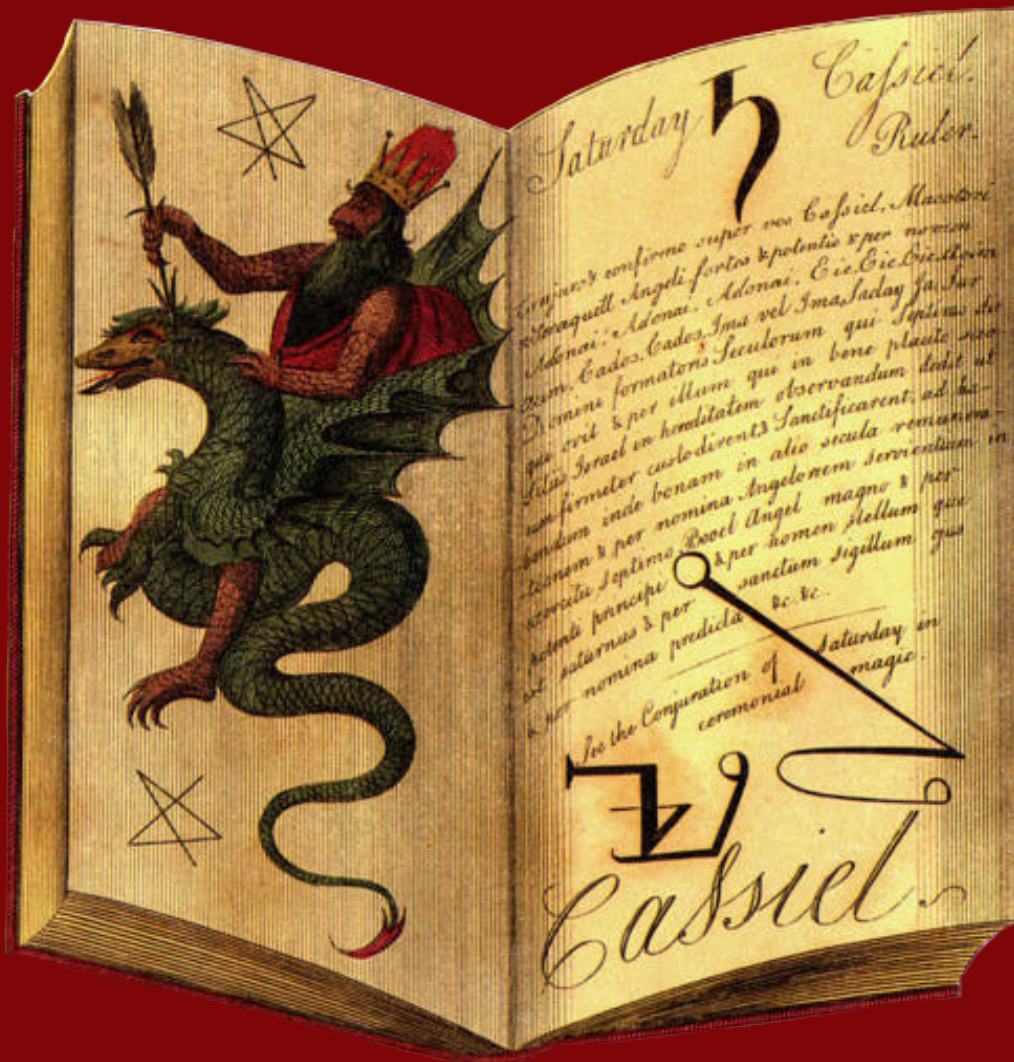 Saturday ♄ Cassiel.
Ruler.
Conjuro & confirmo super vos Cassiel, Macatori
Seraquiel Angeli fortes & potentis & per nomen
Adonai, Adonai, Adonai, Eie, Eie, Eie,
Cados, Cados, Ima vel Ima, Saday Ja, Sar
Domini formatoris Seculorum qui Septimo die
quie ovit & per illum qui in bene placito suo
filiis Israel in hereditatem observandum dedit ut
eum firmeter custodirent & Sanctificarent, ad ha-
bendum inde bonam in alio secula remunera-
tionem & per nomina Angelorum servientium in
exercitu septimo Booel Angel magno & per
potenti principi & per nomen stellum que
est saturnus & per sanctum sigillum gus
& per nomina predicta &c. &c.
for the Conjuration of Saturday in
ceremonial magic.
Cassiel.